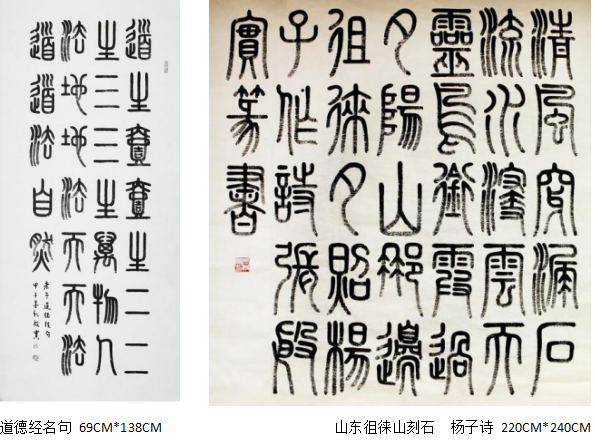 道生壹壹生二二
生三三生萬物人
法地地法天天法
道道法自然
老子道德經句
清風穿漏石
流水浸雲天
靈鳥銜霞過
夕陽山那邊
徂徠夕照楊
子作詩張殷
實篆書
道德经名句 69CM*138CM
山东徂徕山刻石 杨子诗 220CM*240CM